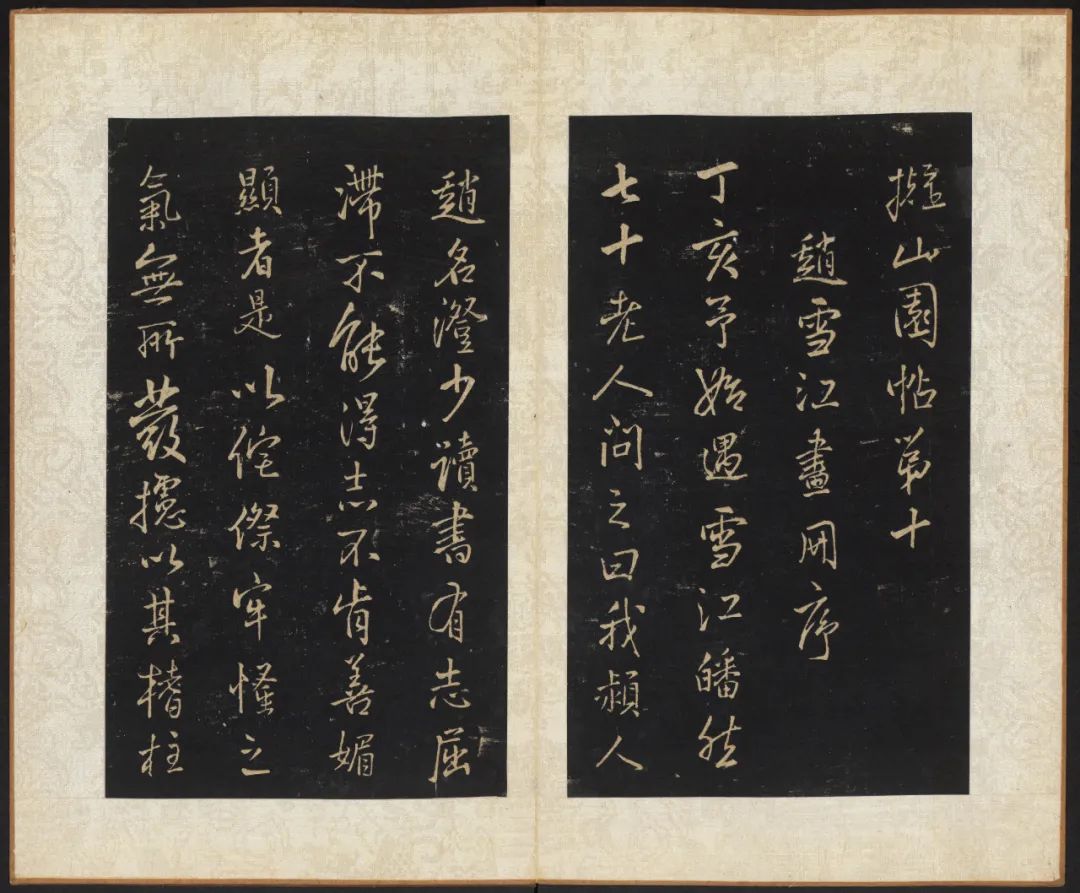 擬山園帖第十
趙雪江畫冊序
丁亥予始遇雪江皤然
七十老人問之曰我潁人
趙名澄少讀書有志屈
滯不能得志不肯善媚
顯者是以侘傺牢慅之
氣無所發攄以其㮇柱